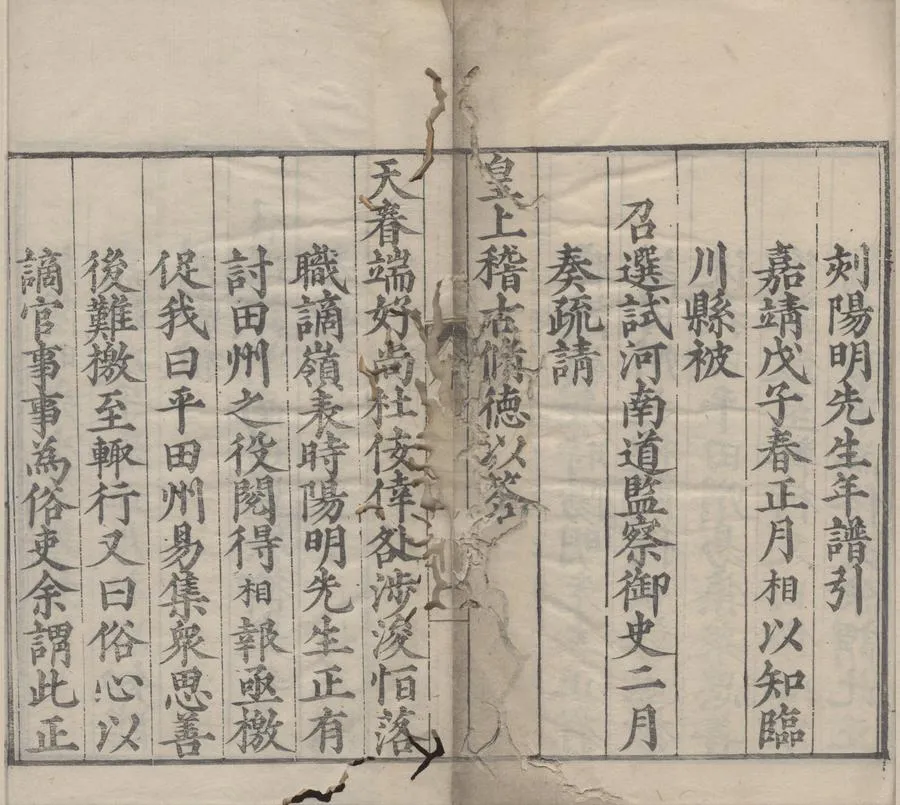 刻陽明先生年譜引
嘉靖戊子春正月相以知臨
川縣被
召選試河南道監察御史二月
奏疏請
皇上稽古脩德以答
天眷端好尚杜佞倖咎涉浚恒落
職謫嶺表時陽明先生正有
討田州之役閱得相報亟檄
促我曰平田州易集衆思善
後難檄至輒行又曰俗心以
謫官事事為俗吏余謂此正